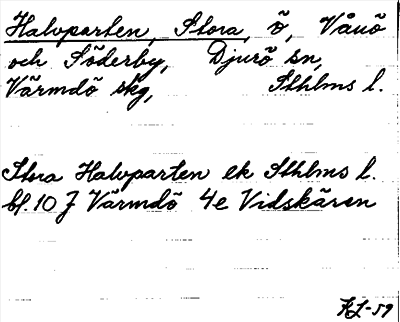 Halvparten, Stora, ö, Vånö
och Söderby, Djurö sn,
Värmdö skg, Sthlms l.
Stora Halvparten ek Sthlms l.
bl. 10 J Värmdö 4e Vidskären
KL-59